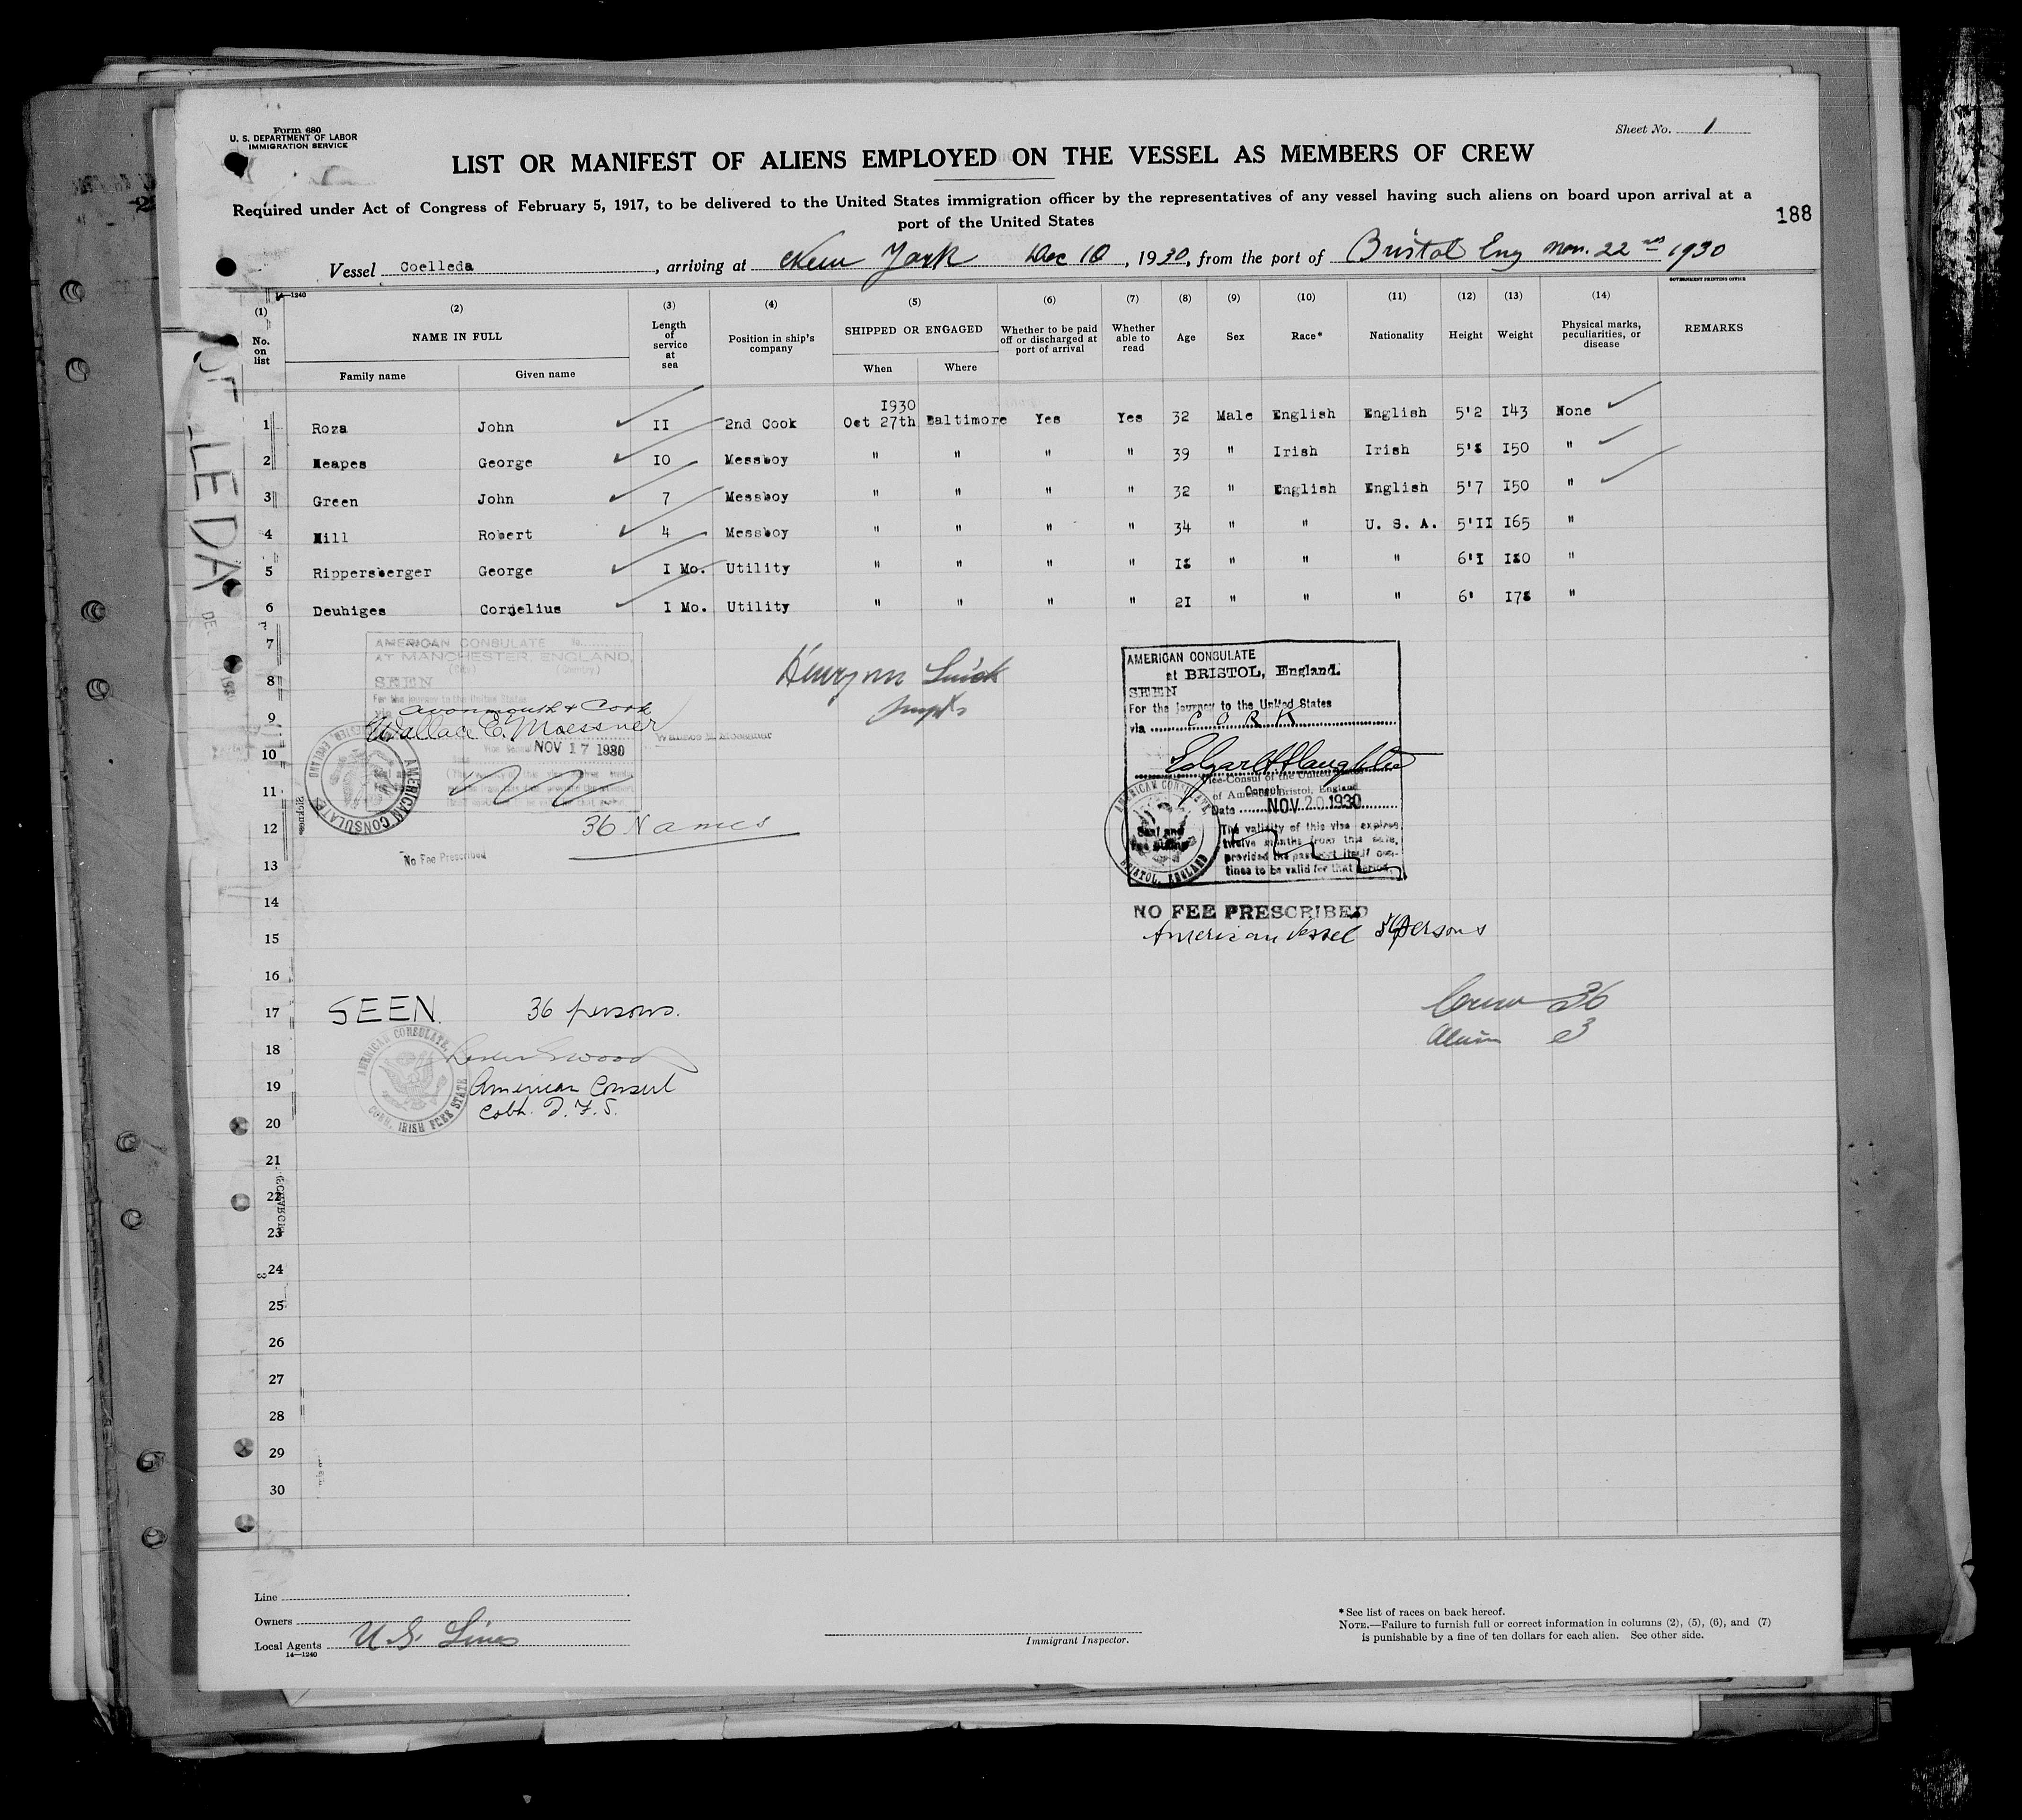 Form 680
U. S. DEPARTMENT OF LABOR
IMMIGRATION SERVICE
Sheet No. 1
LIST OR MANIFEST OF ALIENS EMPLOYED ON THE VESSEL AS MEMBERS OF CREW
Required under Act of Congress of February 5, 1917, to be delivered to the United States immigration officer by the representatives of any vessel having such aliens on board upon arrival at a
port of the United States
188
Vessel Coelleda, arriving at New York Dec 10, 1930, from the port of Bristol Eng Nov. 22nd 1930
14—1240
GOVERNMENT PRINTING OFFICE
(1) (2) (3) (4) (5) (6) (7) (8) (9) (10) (11) (12) (13) (14)
No. on list NAME IN FULL Length of service at sea Position in ship's company SHIPPED OR ENGAGED Whether to be paid off or discharged at port of arrival Whether able to read Age Sex Race* Nationality Height Weight Physical marks, peculiarities, or disease REMARKS
Family name Given name When Where
1930
1 Roza John II 2nd Cook Oct 27th Baltimore Yes Yes 32 Male English English 5'2 I43 None
2 Meapes George IO Messboy " " " " 39 " Irish Irish 5'8 I50 "
3 Green John 7 Messboy " " " " 32 " English English 5'7 I50 "
4 Hill Robert 4 Messboy " " " " 34 " " U. S. A. 5'II I65 "
5 Rippersberger George I Mo. Utility " " " " I8 " " " 6'I I80 "
6 Deuhiges Cornelius I Mo. Utility " " " " 2I " " " 6' I78 "
7
8
9
10
11
12
13
14
15
16
17
18
19
20
21
22
23
24
25
26
27
28
29
30
AMERICAN CONSULATE
AT MANCHESTER, ENGLAND,
(City) (Country)
SEEN
For the journey to the United States
via Avonmouth & Cork
Wallace E. Moessner
NOV 17 1930
AMERICAN CONSULATE
36 Names
No Fee Prescribed
AMERICAN CONSULATE
at BRISTOL, England.
SEEN
For the journey to the United States
via CORK
Vice-Consul of the United States
of America, Bristol, England
Consul
Date NOV 20 1930
The validity of this visa expires
twelve months from this date,
provided the passport itself con-
tinues to be valid for that period.
AMERICAN CONSULATE
Seal and
Fee Stamp
BRISTOL, ENGLAND
NO FEE PRESCRIBED
American Vessel 36 persons
SEEN. 36 persons.
AMERICAN CONSULATE,
COBH, IRISH FREE STATE
American Consul
Cobh. I. F. S.
Crew 36
Alien 3
Line
Owners
Local Agents U.S. Lines
14—1240
Immigrant Inspector.
* See list of races on back hereof.
NOTE.—Failure to furnish full or correct information in columns (2), (5), (6), and (7)
is punishable by a fine of ten dollars for each alien. See other side.